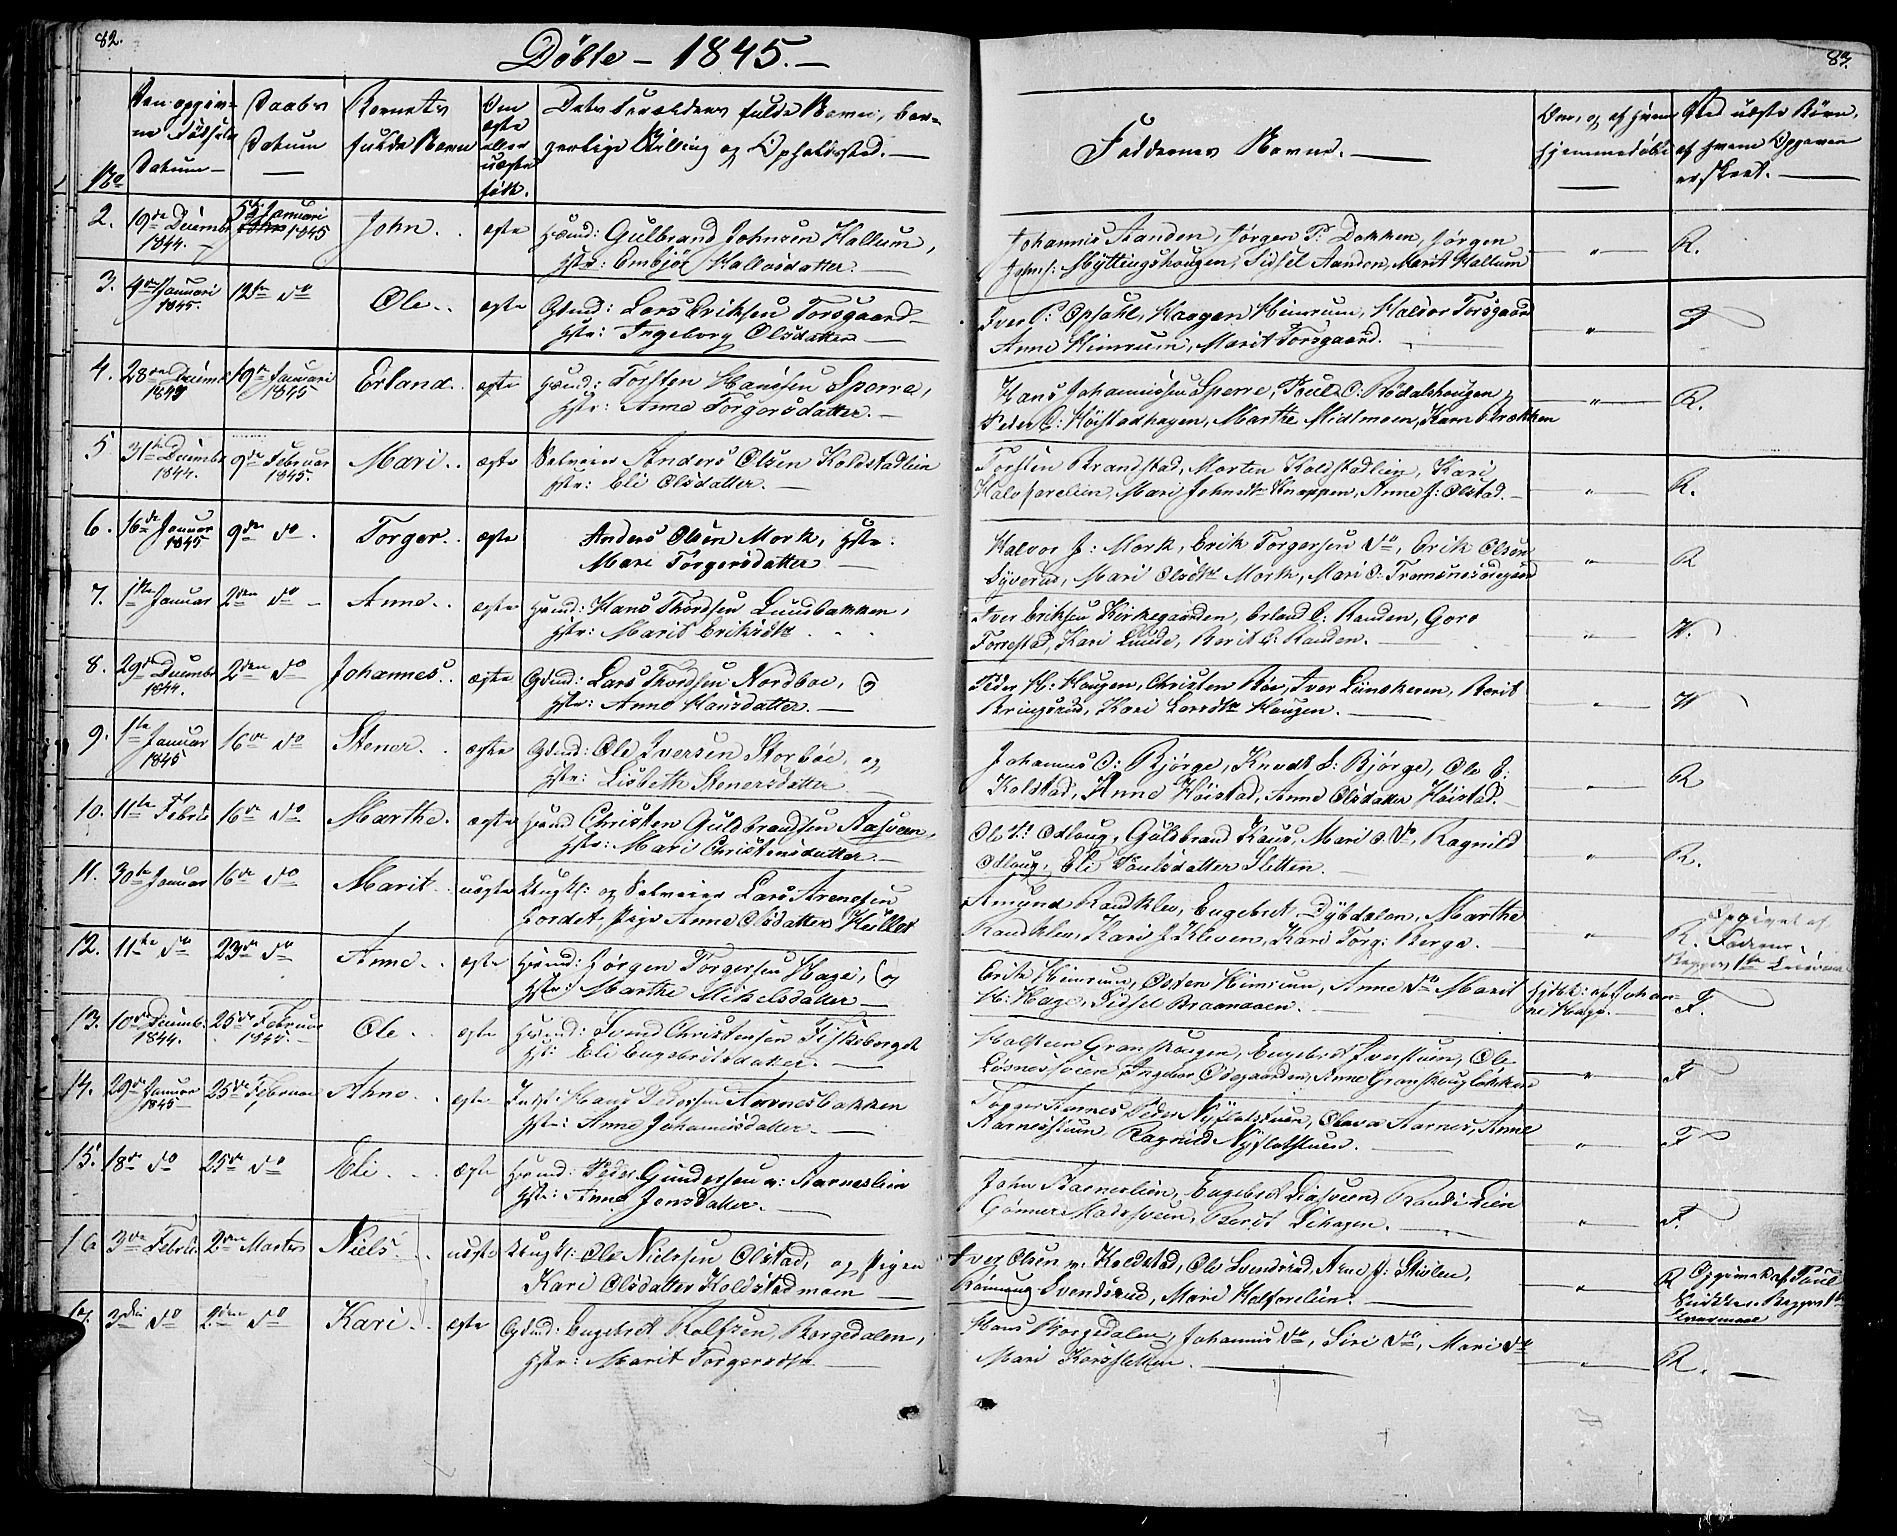 82.
Döbte – 1845. –
83.
No
Den opgiv-
ne Fødsels
Datum –
Daabs
Datum
Barnets
fulde Navn
Om
ægte
eller
uægte
født.
Dets Forældres fulde Navne, bor-
gerlige Stilling og Opholdssted. –
Faddernes Navne. –
Om, og af hvem
hjemmedøbt
Ved uægte Børn,
af hvem Opgaven
er skeet. –
2. 19de Decembr 1844. – 5te Januari 1845 John. ægte Huusmd: Gulbrand Johnsen Hallum,
Hstr: Embjør Hallvosdatter. –
Johannis Aanden, Jørgen P: Dokken, Jørgen
Johns: Myttingshougen, Sidsel Aanden, Marit Hallum
" R.
3. 4de Januari 1845. 12te do Ole. ægte Gbmd: Lars Eriksen Forsgaard
Hstr: Ingeborg Olsdatter –
Iver P: Opsahl, Haagen Heimrum, Halvor Forsgaard
Anne Heimrum, Marit Forsgaard.
" F
4. 28de Decemb 1844 19de Januari 1845 Erland. ægte Huusmd: Torsten Hansen Sperre,
Hstr: Anne Torgersdatter. –
Hans Johannissen Sperre, Poul C: Rødalshougen,
Peder C: Høistadhagen, Marthe Midtmoen, Karn Brækken
" R.
5 31te Decembr 1844. 9de Februar 1845. Mari. ægte Selveier Anders Olsen Koldstadlien
Hstr: Eli Olsdatter. –
Torsten Brandstad, Morten Koldstadlien, Kari
Halvfarelien, Mari Johnsdtr Knappen, Anne J: Olstad. –
" R.
6. 16de Januar 1845 9de do. Torger. ægte Anders Olsen Mork, Hstr:
Mari Torgersdatter –
Halvor J: Mork, Erik Torgersen do, Erik Olsen
Syverud, Mari Olsdtr Mork, Mari O: Tromsnesødegaard
" R
7. 1ste Januar 2den do – Anne. ægte Huusmd: Hans Thordsen Lundbakken,
Hstr: Marit Eriksdtr
Iver Eriksen Kirkegaarden, Erland E: Randen, Goro
Forrestad, Kari Lunde, Berit E: Randen. –
" W.
8. 29de Decembr 1844. 2den do Johannes. ægte Gbmd: Lars Thordsen Nordboe, og
Hstr: Anne Hansdatter. –
Peder H: Hougen, Christen Böe, Iver Lunskeren, Berit
Bringsrud, Kari Larsdtr Hougen. –
" W
9. 1ste Januar 1845 16de do Stener. ægte Gbmd: Ole Iversen Storböe, og
Hstr: Lisbeth Stenersdatter –
Johannes O: Bjørge, Knudt E: Bjørge, Ole E:
Kolstad, Anne Høistad, Anne Olsdatter Høistad. –
" R
10. 11te Febr 16de do Marthe. ægte Huusmd Christen Guldbrandsen Aasveen,
Hstr: Mari Christensdatter –
Ole H: Odloug, Guldbrand Kaus, Mari O. do, Ragnild
Odloug, Eli Poulsdatter Sletten.
" R.
11. 30te Januar 16de do Marit. uægte Ungkl: og Selveier Lars Arnesen
Jordet, Pige Anne Olsdatter Hullet
Amund Randklev, Engebret Dybdalen, Marthe
Randklev, Kari J: Kleven, Kari Torg: Berge. –
" R. Opgivet af
Faderen.
Begges 1ste Leiermaal
12. 11te do 23de do Anne. ægte Huusmd: Jørgen Torgersen Hage, og
Hstr: Marthe Mikelsdatter –
Erik Heimrum, Østen Heimrum, Anne do Marit
H: Hage, Sidsel Braanaaen. –
Hjdbt: af Johan-
ne Hougs. F.
13. 10de Decemb: 1844. 25de Februar 1845. – Ole. ægte Huusmd: Svend Christensen Fiskeberget
Hst: Eli Engebretsdatter. –
Halsteen Granskougen, Engebret Iverstuen, Ole
Løsnesveen, Ingebor Ødegaarden, Anne Granskougløkken
" F
14. 29de Januar 1845 25de Februar Ahne. ægte Inds: Hans Pedersen Aarnesbakken
Hstr: Anne Johannisdatter. –
Torger Aarnes, Peder Nysletstuen, Oleva Aarnes, Anne
Aarnesstuen Ragnild Nysletstuen. –
" F
15. 18de do 25de do Eli. ægte Huusmd: Peder Gundersen v: Aarneslien
Hstr: Anne Jensdatter. –
John Aarneslien, Engebret Liasveen, Randi Lien
Gunner Madssveen, Berit Lihagen. –
" F.
16 3de Febr 2den Marts Niels. uægte Ungkl: Ole Nielssen Olstad, og Pigen
Kari Olsdatter Koldstadmoen –
Iver Olsen v. Koldstad, Ole Svendsrud, Arne J: Skiølen,
Rønnoug Svendsrud, Mari Halfarelien. –
" R Opgivet af Poul
Begges 1ste
Leiermaal
17. 3die do 2den do Kari. ægte Gbmd: Engebret Rolfsen Borgedalen,
Hstr: Marit Torgersdtr –
Hans Borgedalen, Johannes do, Siri do, Mari do
Mari Korssletten. –
" R. –